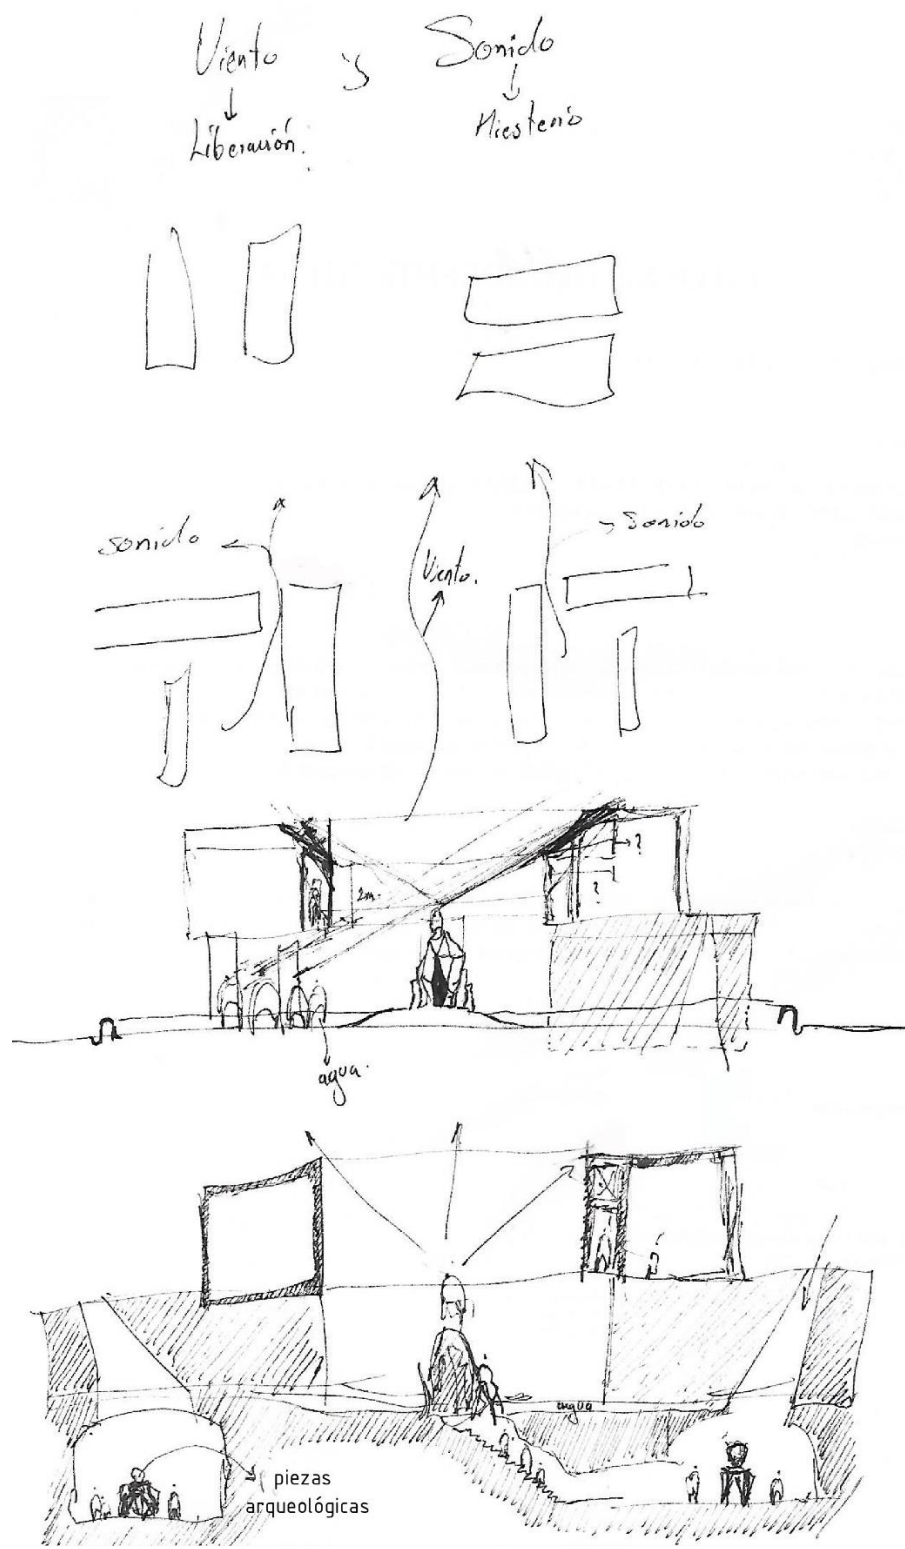 Viento y Sonido
Liberación.
Miesterio
sonido
Viento.
Sonido
2m.
?
?
agua.
agua
piezas
arqueológicas